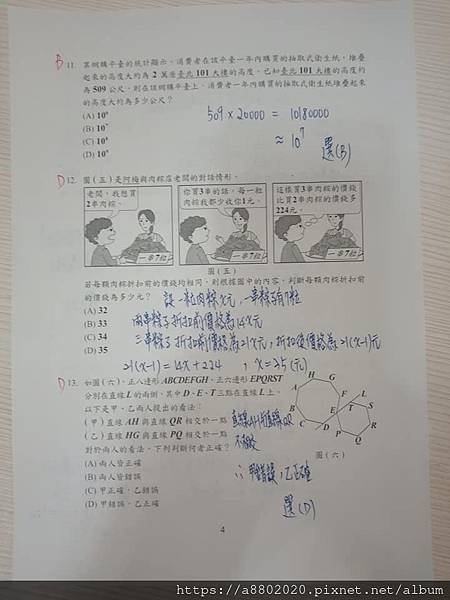 B 11. 某網購平臺的統計顯示，消費者在該平臺一年內購買的抽取式衛生紙，堆疊
起來的高度大約為 2 萬座臺北 101 大樓的高度。已知臺北 101 大樓的高度約
為 509 公尺，則在該網購平臺上，消費者一年內購買的抽取式衛生紙堆疊起來
的高度大約為多少公尺？
(A) 10⁶
(B) 10⁷
(C) 10⁸
(D) 10⁹
509 × 20000 = 10180000
≈ 10⁷
選(B)
D 12. 圖(五)是阿梅與肉粽店老闆的對話情形。
老闆，我想買
2串肉粽。
你買3串的話，每一粒
肉粽我都少收你1元。
這樣買3串肉粽的價錢
比買2串肉粽的價錢多
224元。
一串7粒
一串7粒
一串7粒
圖(五)
若每顆肉粽折扣前的價錢均相同，則根據圖中的內容，判斷每顆肉粽折扣前
的價錢為多少元？
設一粒肉粽x元，一串粽子有7粒
(A) 32
(B) 33
(C) 34
(D) 35
兩串粽子折扣前價格為14x元
三串粽子折扣前價格為21x元，折扣後價格為21(x-1)元
21(x-1) = 14x + 224 , x = 35(元)
D 13. 如圖(六)，正八邊形ABCDEFGH、正六邊形EPQRST
分別在直線 L 的兩側，其中 D、E、T 三點在直線 L 上。
以下是甲、乙兩人提出的看法：
(甲) 直線 AH 與直線 QR 相交於一點
(乙) 直線 HG 與直線 PQ 相交於一點
對於兩人的看法，下列判斷何者正確？
(A) 兩人皆正確
(B) 兩人皆錯誤
(C) 甲正確，乙錯誤
(D) 甲錯誤，乙正確
直線AH與直線QR
不相交
∴甲錯誤，乙正確
選(D)
H
G
A
F
L
B
E
T
S
C
D
R
P
Q
圖(六)
4
https://a8802020.pixnet.net/album